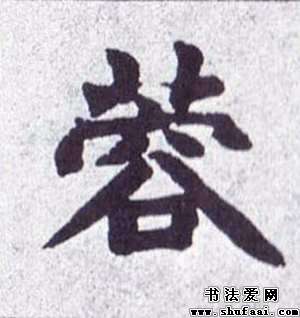 蓉
书法爱网
www.shufaai.com